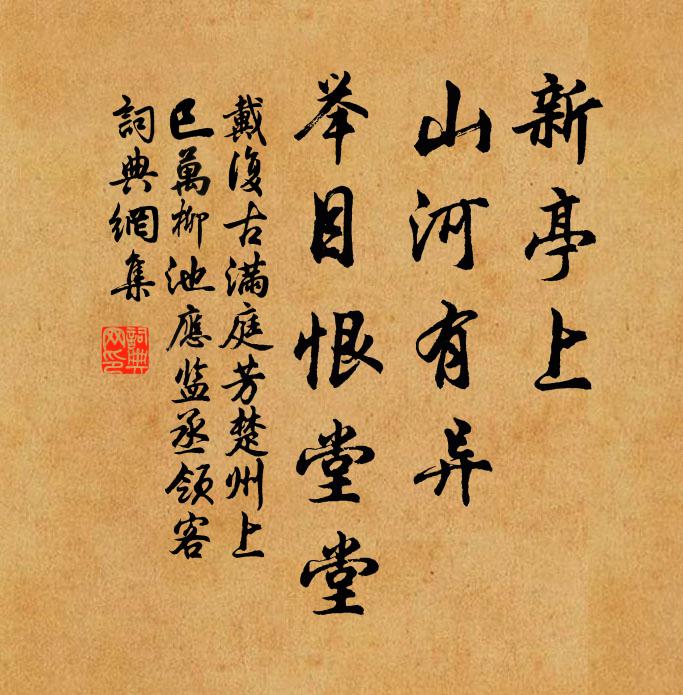 新亭上
山河有异
举目恨堂堂
戴復古滿庭芳楚州上
巳萬柳池應监丞領客
詞典網集
詞典网印